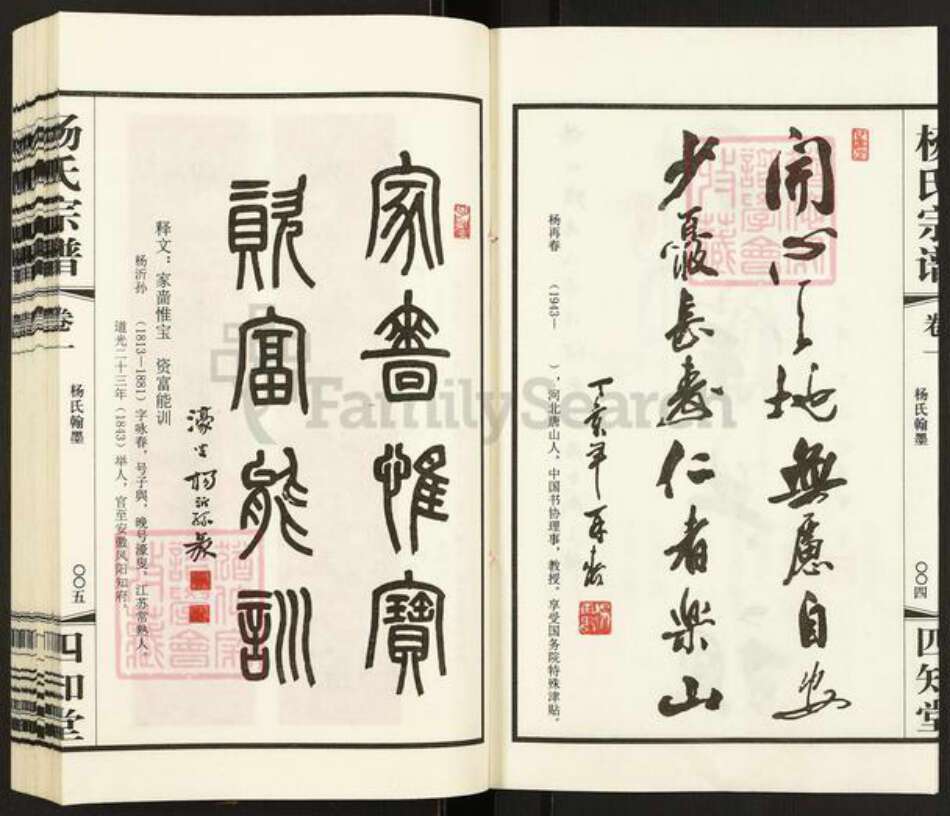 杨氏宗谱
卷一
杨氏翰墨
〇〇四
四知堂
開心天地無慮自安
少憂長壽仁者樂山
丁亥年 再春
杨再春 （1943— ），河北唐山人，中国书协理事，教授，享受国务院特殊津贴。
家嗇惟寶
資富能訓
濠叟楊沂孫篆
释文：家啬惟宝 资富能训
杨沂孙 （1813—1881）字咏春，号子與，晚号濠叟，江苏常熟人，
道光二十三年（1843）举人，官至安徽凤阳知府。
杨氏宗谱
卷一
杨氏翰墨
〇〇五
四知堂
FamilySearch